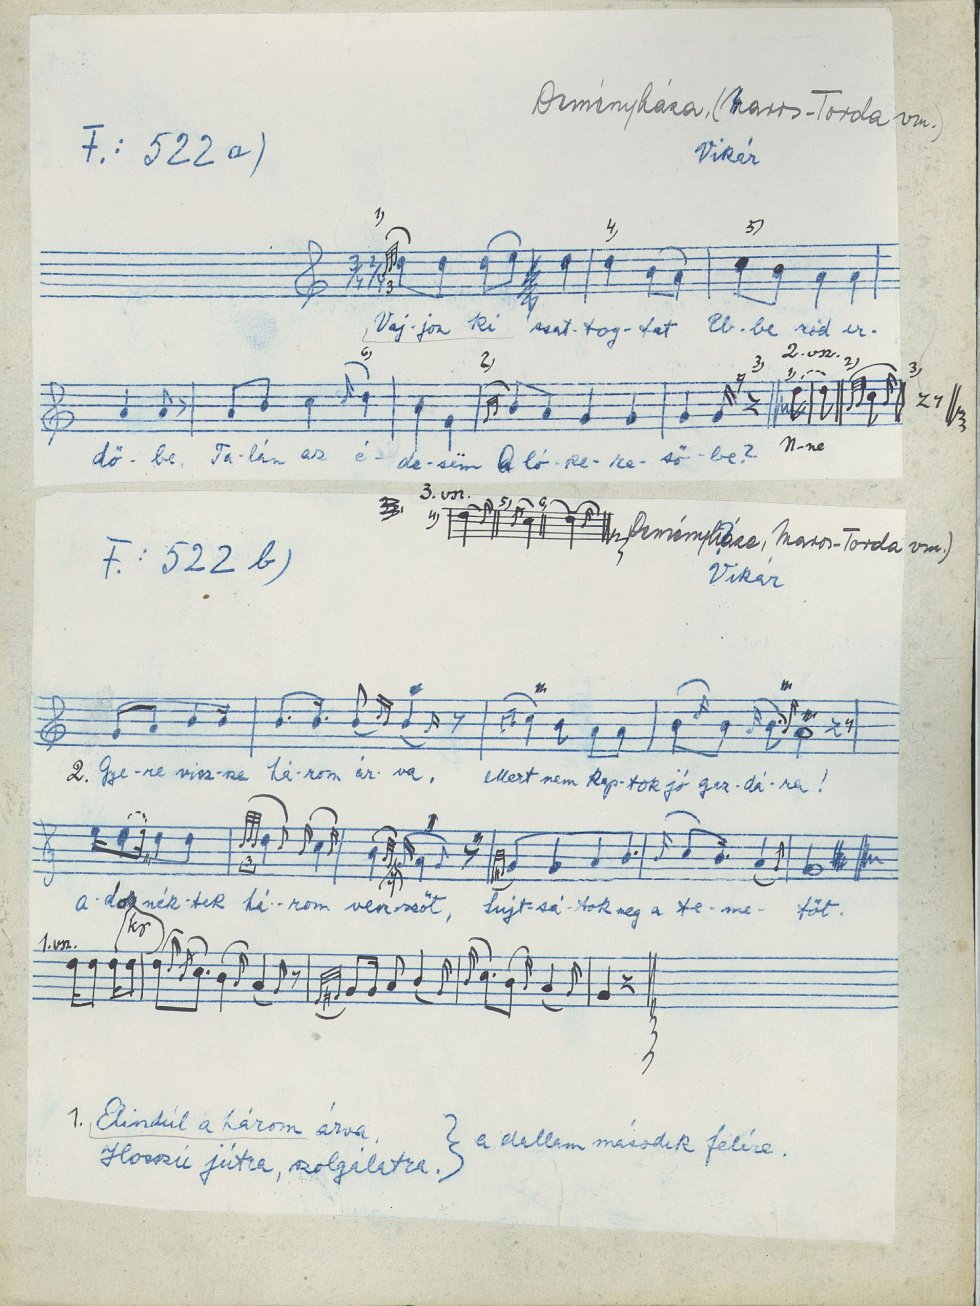 Örményháza, (Maros-Torda vm.)
F.: 522 a)
Vikár
1) 4) 5)
3/4 2/4 3
Vaj-jon ki szat-tog-tat Eb-be röd er-
6) 2) 3) 2. vsz. 1) 2) 3)
dő-be, Ta-lán az é- de-sëm A ló-ke-ke- ső-be?
N-ne
3. vsz.
4) 5) 6)
Örményháza, Maros-Torda vm.)
F.: 522 b)
Vikár
2. Gye-re visz-sza há-rom ár-va, Mert nem kap-tok jó gaz-dá-ra!
3
a-dok nék-tek há-rom vesz-szőt, Sujt-sá-tok meg a te-me-tőt.
1. vsz.
1. Elindúl a három árva,
Hosszú jútra, szolgálatra. } a dallam második felére.